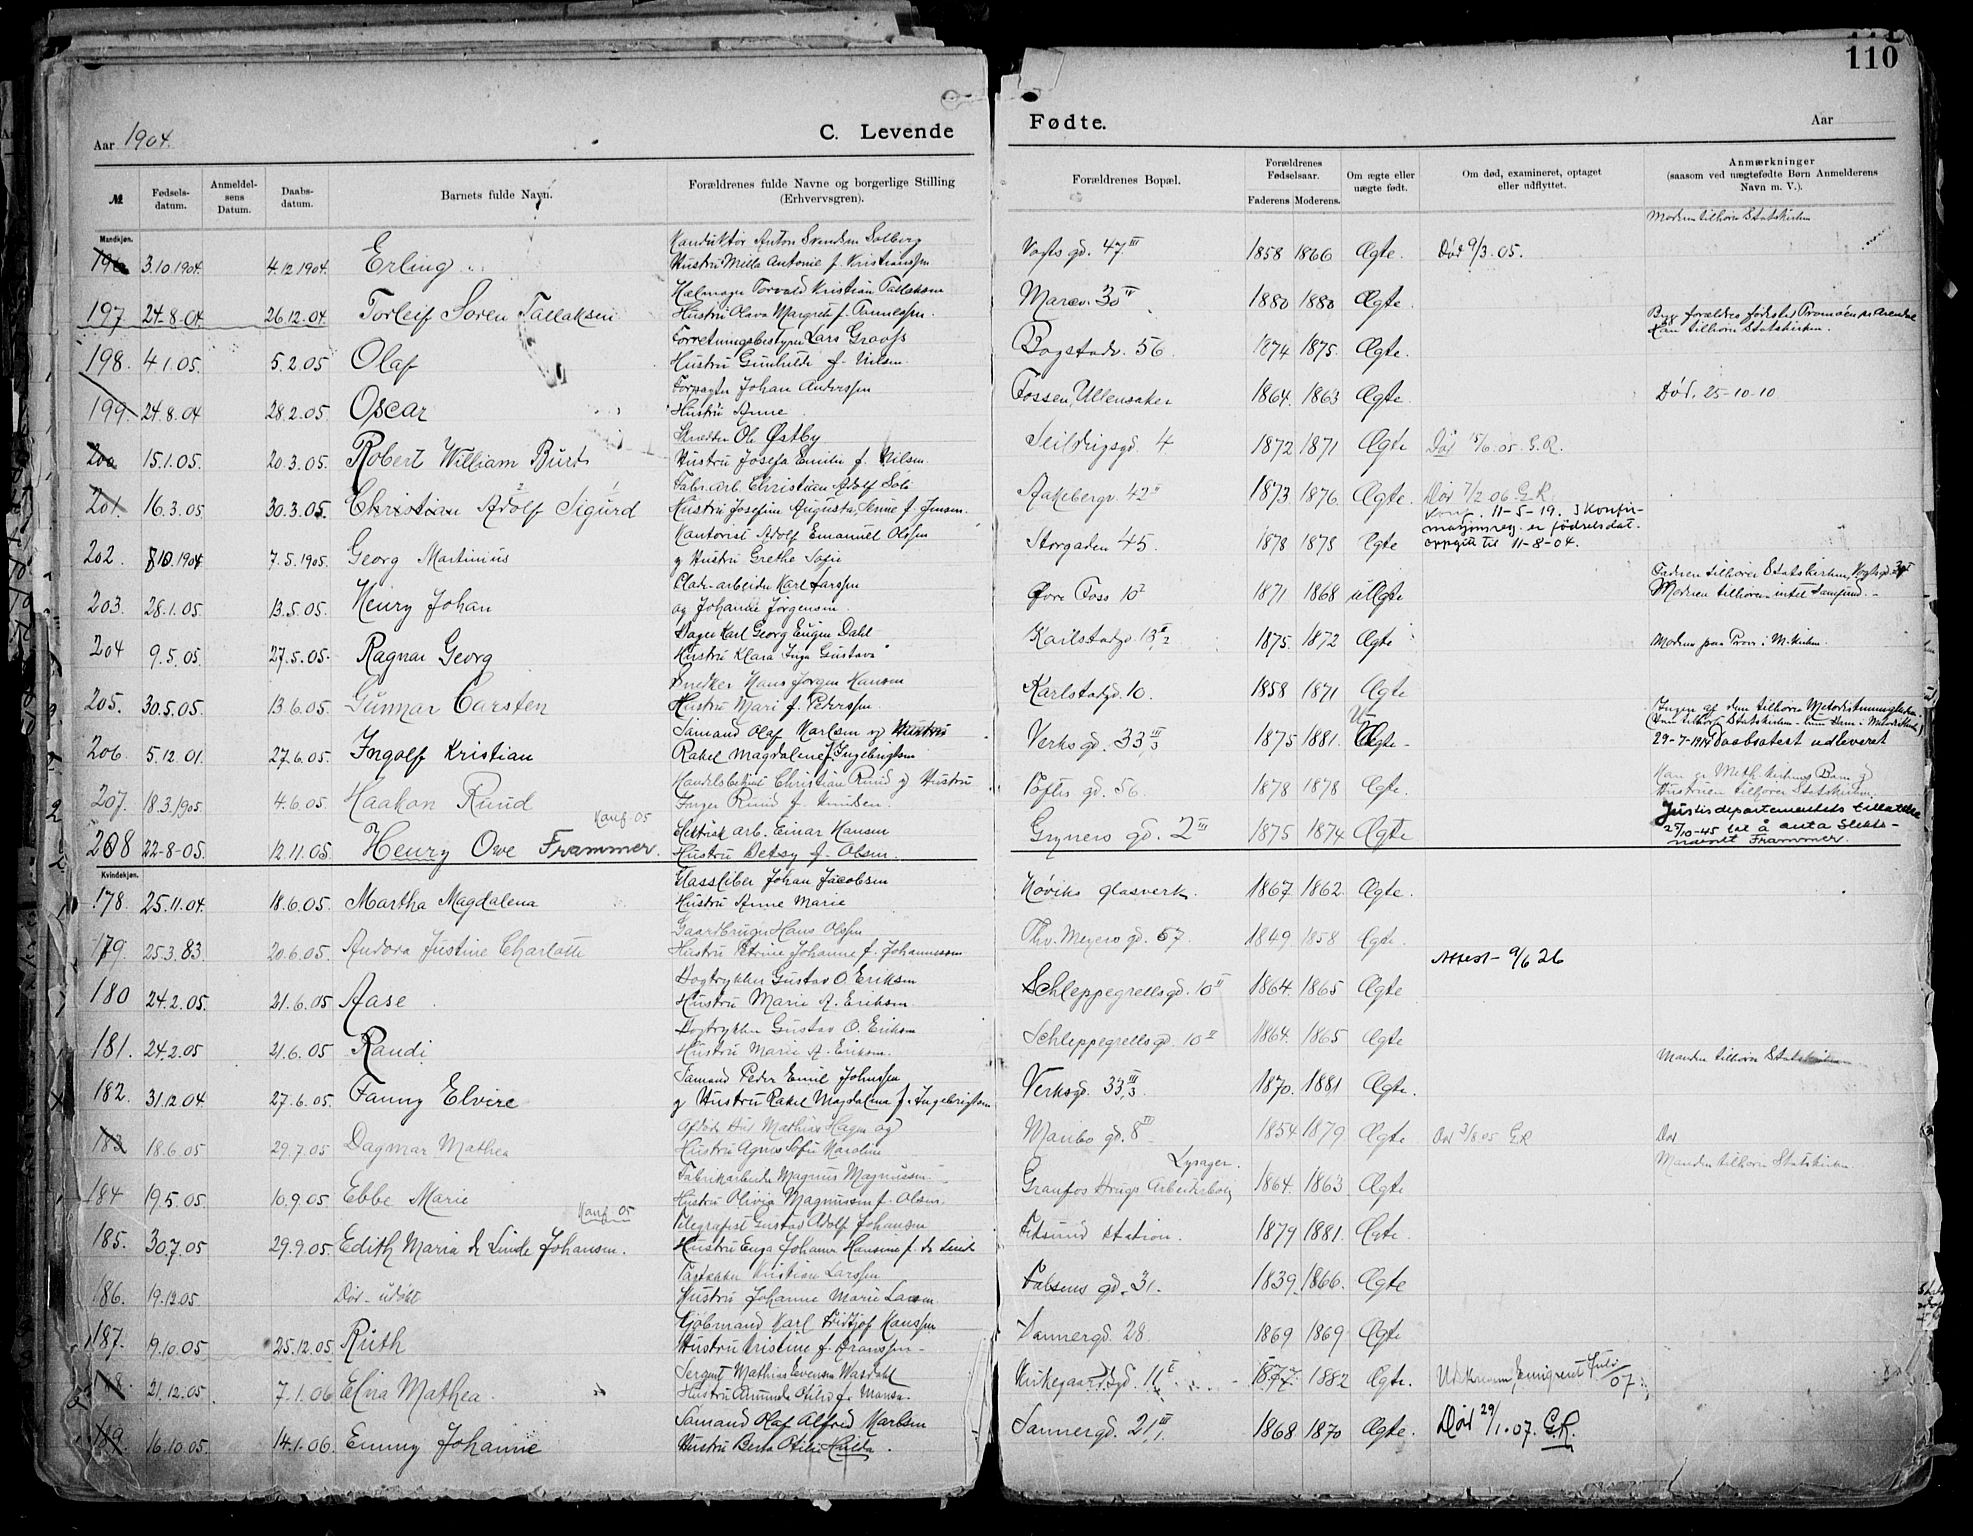 110
Aar 1904. C. Levende Fødte. Aar
№ Fødsels-datum. Anmeldel-sens Datum. Daabs-datum. Barnets fulde Navn. Forældrenes fulde Navne og borgerlige Stilling (Erhvervsgren). Forældrenes Bopæl. Forældrenes Fødselsaar. Faderens Moderens. Om ægte eller uægte født. Om død, examineret, optaget eller udflyttet. Anmærkninger (saasom ved uægtefødte Børn Anmelderens Navn m. V.).
Mandkjøn.
Konduktør Anton Svendsen Solberg Moderen tilhører Statskirken
196 3.10.1904. 4.12.1904. Erling Hustru Milla Antonie f. Kristianssen Vogts gd. 47 III 1858 1866 Ægte. Død 9/3.05.
Torvald Kristian Tallaksen
197 24.8.04 26.12.04 Torleif Soren Tallaksen Hustru Olava Margrete f. 30 IV 1880 1880 Ægte.
Forretningsbestyrer Lars Graafs forældre fødested Tromøen pr Arendal
198. 4.1.05. 5.2.05 Olaf Hustru Gunhilde f. Nilsen Bogstadv. 56. 1874 1875. Ægte. tilhører Statskirken.
Forpagter Johan Anderssen
199 24.8.04 28.2.05 Oscar Hustru Anne Fossen, Ullensaker 1864. 1863 Ægte. Død. 25-10-10
Skrædder Ole Østby
200 15.1.05. 20.3.05. Robert William Burt Hustru Josefa Emilie f. Nilsen. Seildugsgd. 4 1872 1871 Ægte Død 15/6.05. G.R.
Fabr.arb. Christian Adolf Sole
201. 16.3.05. 30.3.05. Christian Adolf Sigurd Hustru Josefine Augusta f. Jensen. Aakebergv. 42 II 1873 1876. Ægte. Død 7/2 06. G.R.
Kontorist Adolf Emanuel Olssen Konf. 11-5-19. I Konfir-
202. 8.10.1904 7.5.1905. Georg Martinius og Hustru Grethe Sofie Storgaden 45. 1878 1878 Ægte masjonsreg. er fødselsdat. oppgitt til 11-8-04.
arbeider Karl Larssen Fadren tilhører Statskirken, Vogtsgd.
203. 28.1.05 13.5.05. Henry Johan og Johanne Jørgensen. Øvre Foss 10 2 1871 1868 uÆgte Modren tilhører intet Samfund.
Karl Georg Eugen Dahl
204 9.5.05. 27.5.05. Ragnar Georg Hustru Klara Inga Gustava Karlstadgd. 13 II 2 1875. 1872 Ægte Modren paa Prøve i M. Kirken.
Snedker Hans Jørgen Hansen
205. 30.5.05. 13.6.05. Gunnar Carsten Hustru Mari f. Pederssen. Karlstadgd. 10. 1858 1871 Ægte
Sømand Olaf Karlsen og Hustru Ingen af dem tilhører Metodistmenigheden
206 5.12.01 27.6.05. Ingolf Kristian Rakel Magdalene f. Ingebrigtsen Verksgd. 33 III 3 1875 1881. UÆgte. 29-7-1914 Daabsatest udleveret
Handelsbetjent Christian Ruud og Hustru Han er Meth. kirkens Barn og
207. 18.3.1905. 4.6.05. Haakon Ruud Inger Ruud f. Knudsen. Toftes gd. 56. 1878 1878 Ægte. Hustruen tilhører Statskirken.
Konf. 05 Elektrisk arb. Einar Hansen Justisdepartementets tillatelse
208 22-8-05. 12.11.05. Henry Owe Frammer. Hustru Betsy f. Olsen. Gryners gd. 2 III 1875 1874 Ægte 25/10-45 til å anta slekts-navnet Frammer.
Kvindekjøn.
Glassliber Johan Jacobsen
178. 25.11.04. 18.6.05. Martha Magdalena Hustru Anne Marie Høviks glasverk. 1867. 1862. Ægte.
Gaardbruger Hans Olssen
179. 25.3.83. 20.6.05. Andora Justine Charlotte Hustru Petrine Johanne f. Johannessen Thv. Meyers gd. 67. 1849 1858 Ægte.
Bogtrykker Gustav O. Eriksen Attest - 9/6 26
180 24.2.05. 21.6.05 Aase Hustru Marie A. Eriksen. Schleppegrellsgd. 10 II 1864. 1865 Ægte
Bogtrykker Gustav O. Eriksen
181. 24.2.05 21.6.05 Randi Hustru Marie A. Eriksen. Schleppegrellsgd. 10 II 1864. 1865 Ægte
Sømand Peder Emil Johnssen Manden tilhører Statskirken
182. 31.12.04. 27.6.05. Fanny Elvire og Hustru Rakel Magdalena f. Ingebrigtsen Verksgd. 33 III 3. 1870. 1881 Ægte.
Mathias Hagen og
183 18.6.05 29.7.05 Dagmar Mathea Hustru Agnes Sofie Karoline Maribo gd. 8 III 1854 1879 Ægte. Død 3/8 05 G.R. Død
Fabrikarbeider Magnus Magnussen Lysager. Manden tilhører Statskirken
184 19.5.05 10.9.05. Ebbe Marie Hustru Olivia Magnussen f. Olsen Granfos Brugs Arbeiderbolig 1864. 1863. Ægte
Konf. 05 Telegrafist Gustav Adolf Johansen
185. 30.7.05 29.9.05. Edith Maria de Linde Johansen. Hustru Enga Johanne Hansine f. de Linde Fetsund station. 1879 1881. Ægte.
Kristian Larssen
186. 19.12.05. Død - udøbt Hustru Johanne Marie Larsen. Falsens gd. 31. 1839. 1866. Ægte
Kjøbmand Karl Fridtjof Hanssen
187. 9.10.05 25.12.05. Ruth Hustru Kristine f. Franssen Sannergd. 28. 1869 1869 Ægte
Sergent Mathias Evensen
188. 21.12.05. 7.1.06 Elna Mathea. Hustru f. Hansen. Kirkegaardsgd. 11 I 1877. 1882 Ægte. Udskreven, Emigreret Juli/07.
Sømand Olaf Alfred Karlsen
189. 16.10.05. 14.1.06. Emmy Johanne Hustru Berta Otilie Hulda. Sannergd. 21 III 1. 1868 1870 Ægte. Død 29/1.07. G.R.